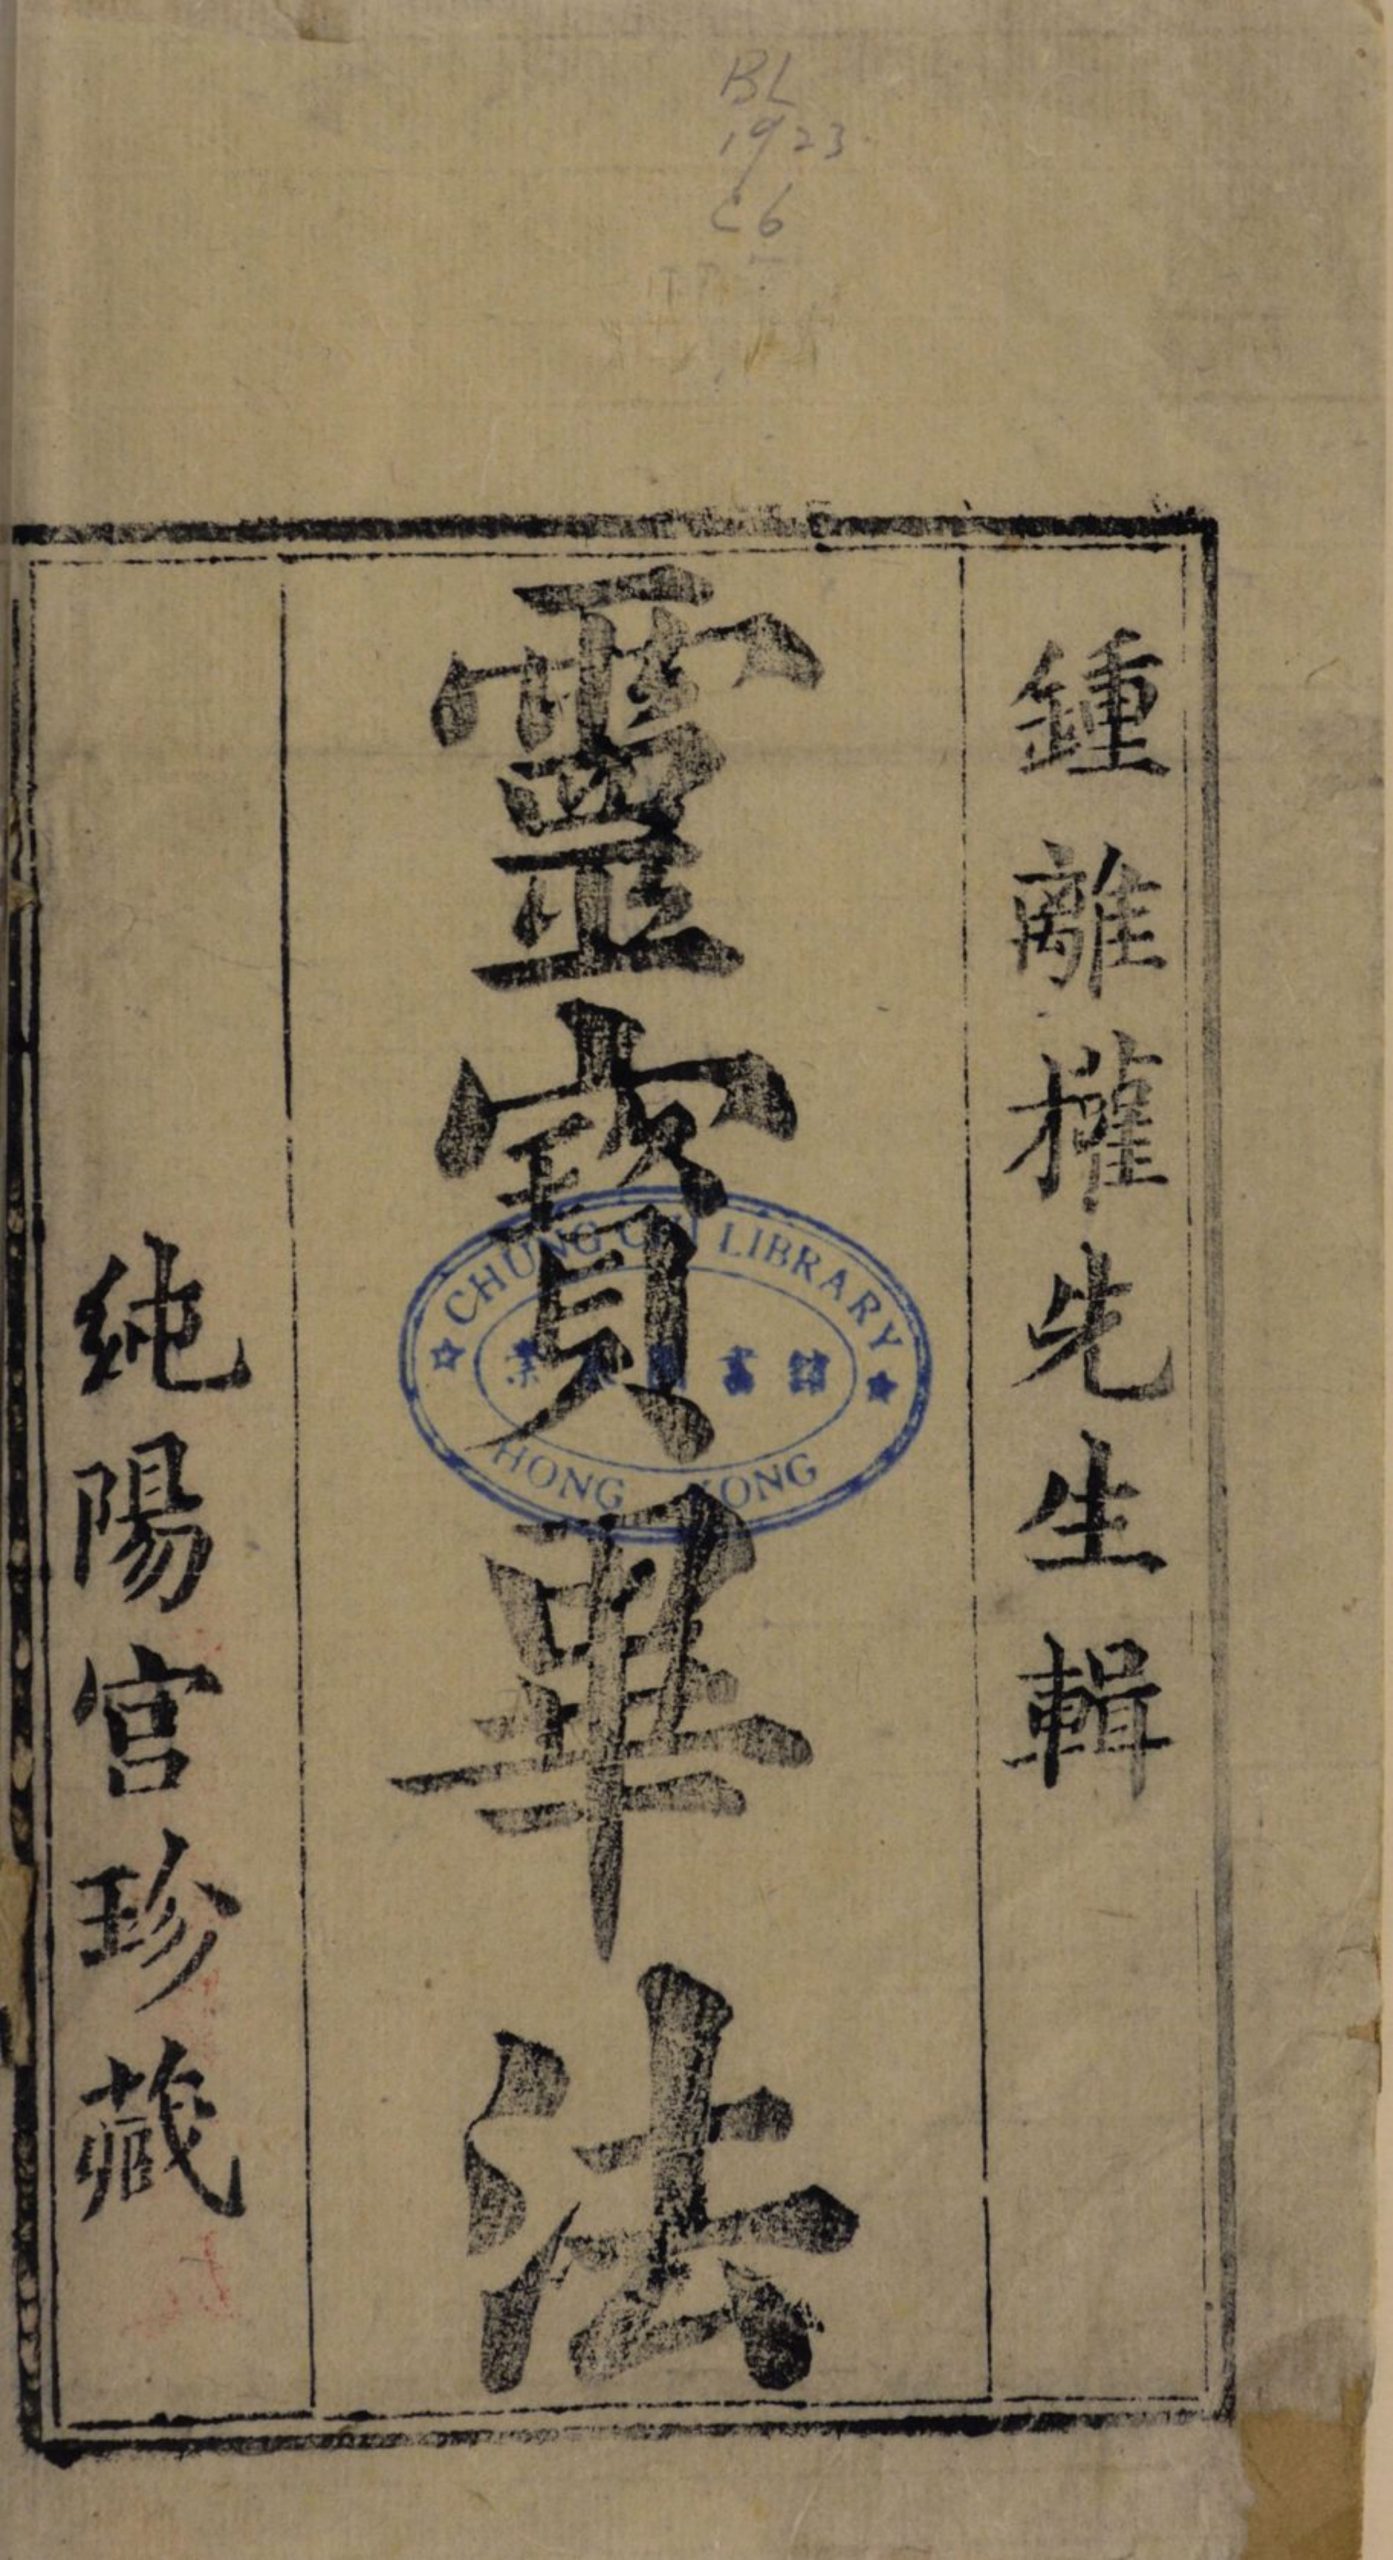 BL
1923
C6
鍾離權先生輯
靈寶畢法
純陽宮珍藏
CHUNG CHI LIBRARY
書館
HONG KONG